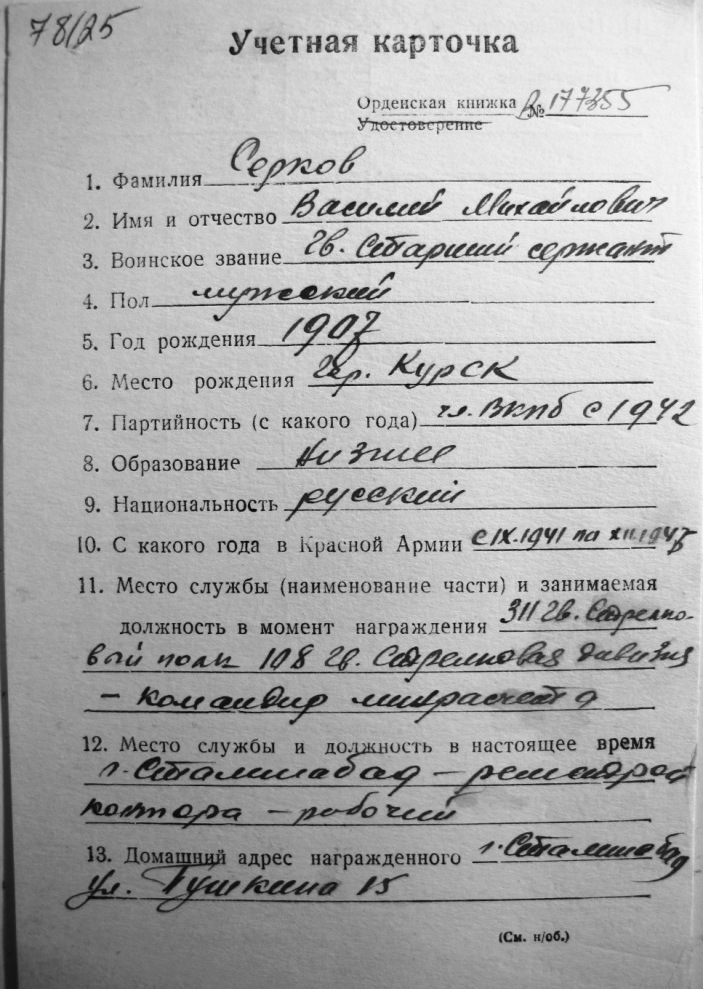 78/25
Учетная карточка
Орденская книжка № В177355
Удостоверение
1. Фамилия Серков
2. Имя и отчество Василий Михайлович
3. Воинское звание гв. Старший сержант
4. Пол мужской
5. Год рождения 1907
6. Место рождения гор. Курск
7. Партийность (с какого года) чл. ВКПб с 1942
8. Образование Низшее
9. Национальность русский
10. С какого года в Красной Армии с IX.1941 по XII.1947
11. Место службы (наименование части) и занимаемая
должность в момент награждения 311 гв. Стрелко-
вый полк 108 гв. Стрелковая дивизия
– командир минрасчета
12. Место службы и должность в настоящее время
г. Сталинабад – ремстрой
контора – рабочий
13. Домашний адрес награжденного г. Сталинабад
ул. Пушкина 15
(См. н/об.)